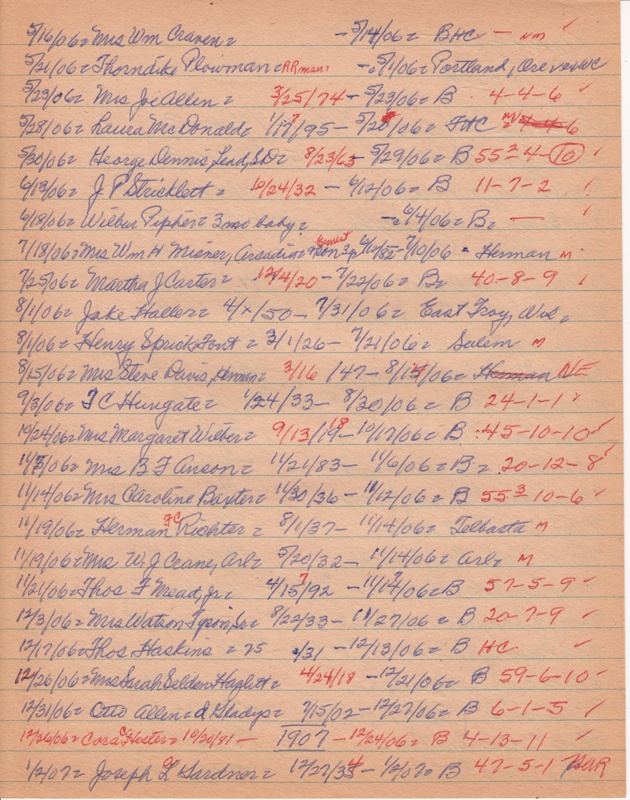 5/16/06= Mrs Wm Craven= -5/14/06= BHC - NM ✓
5/21/06= Thorndike Plowman= RRman= -= 5/1/06= Portland, Ore
5/23/06= Mrs Joe Allen= 3/25/74 - 5/23/06= B 4-4-6 ✓
5/28/06= Laura McDonald= 1/17/95 - 5/28/06= FHC 4-4-6
5/30/06= George Dennis, Lead, SD= 8/23/63 - 5/29/06= B 55 2 4-10 ✓
6/13/06= J P Stricklett= 10/24/32 - 6/12/06= B 11-7-2 ✓
6/18/06= Wilber Pipher= 3 mo baby= -= 6/4/06= B= - ✓
7/18/06= Mrs Wm H Miener, Arcadia= 6/10/82 - 7/10/06= Herman M
7/25/06= Martha J Carter= 12/4/20 - 7/22/06= B= 40-8-9 ✓
8/1/06= Jake Haller= 4/x/50 - 7/31/06= East Troy, Wis=
8/1/06= Henry Sprick Font= 3/1/26 - 7/21/06= Salem M
8/15/06= Mrs Steve Davis, Herman= 3/16/47 - 8/14/06= Herman NE
9/3/06= T C Hungate= 1/24/33 - 8/20/06= B 24-1-1 ✓
10/24/06= Mrs Margaret Wilber= 9/13/19 18 - 10/17/06= B 45-10-10 ✓
11/8/06= Mrs B F Anson= 11/21/83 - 11/6/06= B= 20-12-8 ✓
11/14/06= Mrs Caroline Baxter= 11/30/36 - 11/12/06= B 55 3 10-6 ✓
11/19/06= Herman FC Richter= 8/1/37 - 11/14/06= Telbasta M
11/19/06= Mrs W. J Crane, Arl= 5/20/32 - 11/14/06= Arl= M
11/21/06= Thos F Mead, Jr= 4/15/92 7 - 11/14/06= B 57-5-9 ✓
12/3/06= Mrs Watson Tyson, Sr= 8/22/33 - 11/27/06= B 20-7-9 ✓
12/17/06= Thos Haskins = 75 /31 - 12/13/06= B HC ✓
12/26/06= Mrs Sarah Selden Haglett= 4/24/18 - 12/21/06= B 59-6-10 ✓
12/31/06= Otto Allen= d Gladys= 7/15/02 - 12/27/06= B 6-1-5 ✓
12/26/06= Cora C Hester= 10/20/81 - 12/24/06= B 4-13-11 ✓
1907
1/2/07= Joseph L Gardner= 12/27/34 - 1/2/07= B 47-5-1